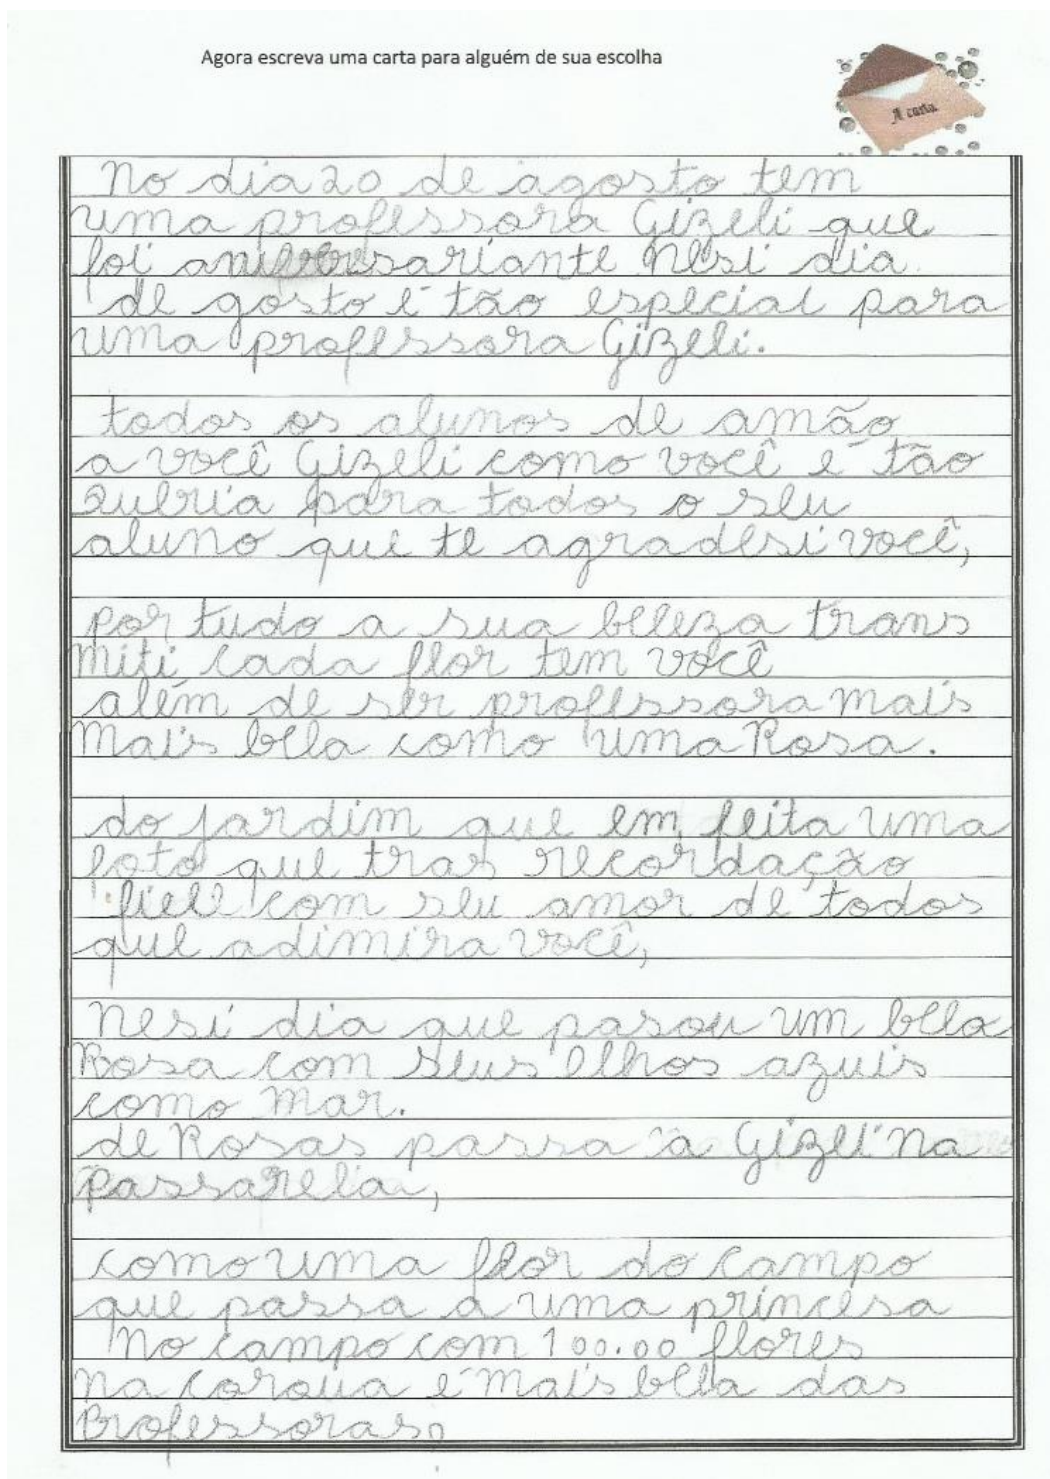 Agora escreva uma carta para alguém de sua escolha
A carta
No dia 20 de agosto tem
uma professora Gizeli que
foi aniversariante nesi dia
de gosto é tão especial para
uma professora Gizeli.
todos os alunos de amão
a você Gizeli como você é tão
para todos o seu
aluno que te agradesi você,
por tudo a sua beleza trans
miti cada flor tem você
além de ser professora mais
mais bela como uma Rosa.
do jardim que em feita uma
foto que tras recordação
fiele com seu amor de todos
que adimira você,
nesi dia que pasou um bela
Rosa com seus olhos azuis
como mar.
de Rosas passa a Gizeli na
passarela,
como uma flor do campo
que passa a uma princesa
no campo com 100.00 flores
na coroua é mais bela das
Professoras.